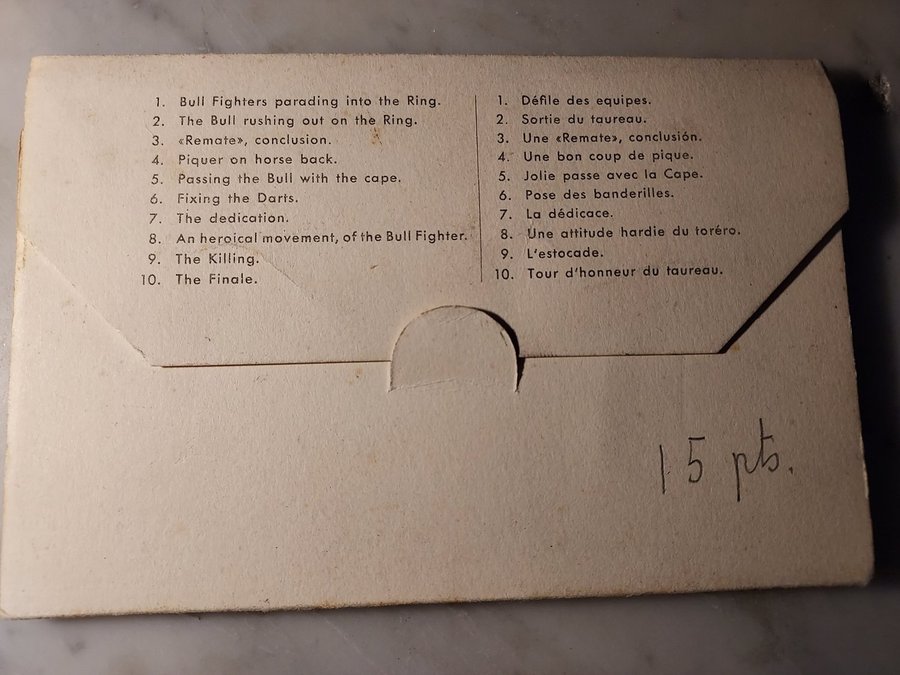 1. Bull Fighters parading into the Ring.
2. The Bull rushing out on the Ring.
3. «Remate», conclusion.
4. Piquer on horse back.
5. Passing the Bull with the cape.
6. Fixing the Darts.
7. The dedication.
8. An heroical movement, of the Bull Fighter.
9. The Killing.
10. The Finale.
1. Défile des equipes.
2. Sortie du taureau.
3. Une «Remate», conclusión.
4. Une bon coup de pique.
5. Jolie passe avec la Cape.
6. Pose des banderilles.
7. La dédicace.
8. Une attitude hardie du toréro.
9. L'estocade.
10. Tour d'honneur du taureau.
15 pts.